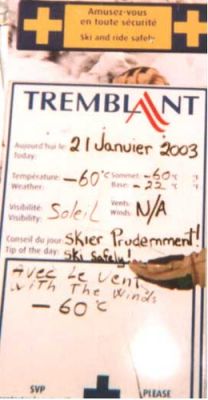 Amusez-vous
en toute sécurité
Ski and ride safely
TREMBLANT
Aujourd'hui le: 21 Janvier 2003
Today:
Température: -60°C Sommet: -60°C
Weather: Base: -22°C
Visibilité: Soleil Vents: N/A
Visibility: Winds:
Conseil du jour: Skier Prudemment!
Tip of the day: Ski Safely!
Avec Le Vent
with The Winds
-60°C
SVP PLEASE